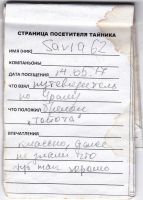 СТРАНИЦА ПОСЕТИТЕЛЯ ТАЙНИКА
ИМЯ (НИК) Savra 62
КОМПАНЬОНЫ
ДАТА ПОСЕЩЕНИЯ 14.09.17
ЧТО ВЗЯЛ путеводитель
по Крыму
ЧТО ПОЛОЖИЛ брелок
"Тойота"
ВПЕЧАТЛЕНИЯ
классно, даже
не знали что
тут так хорошо